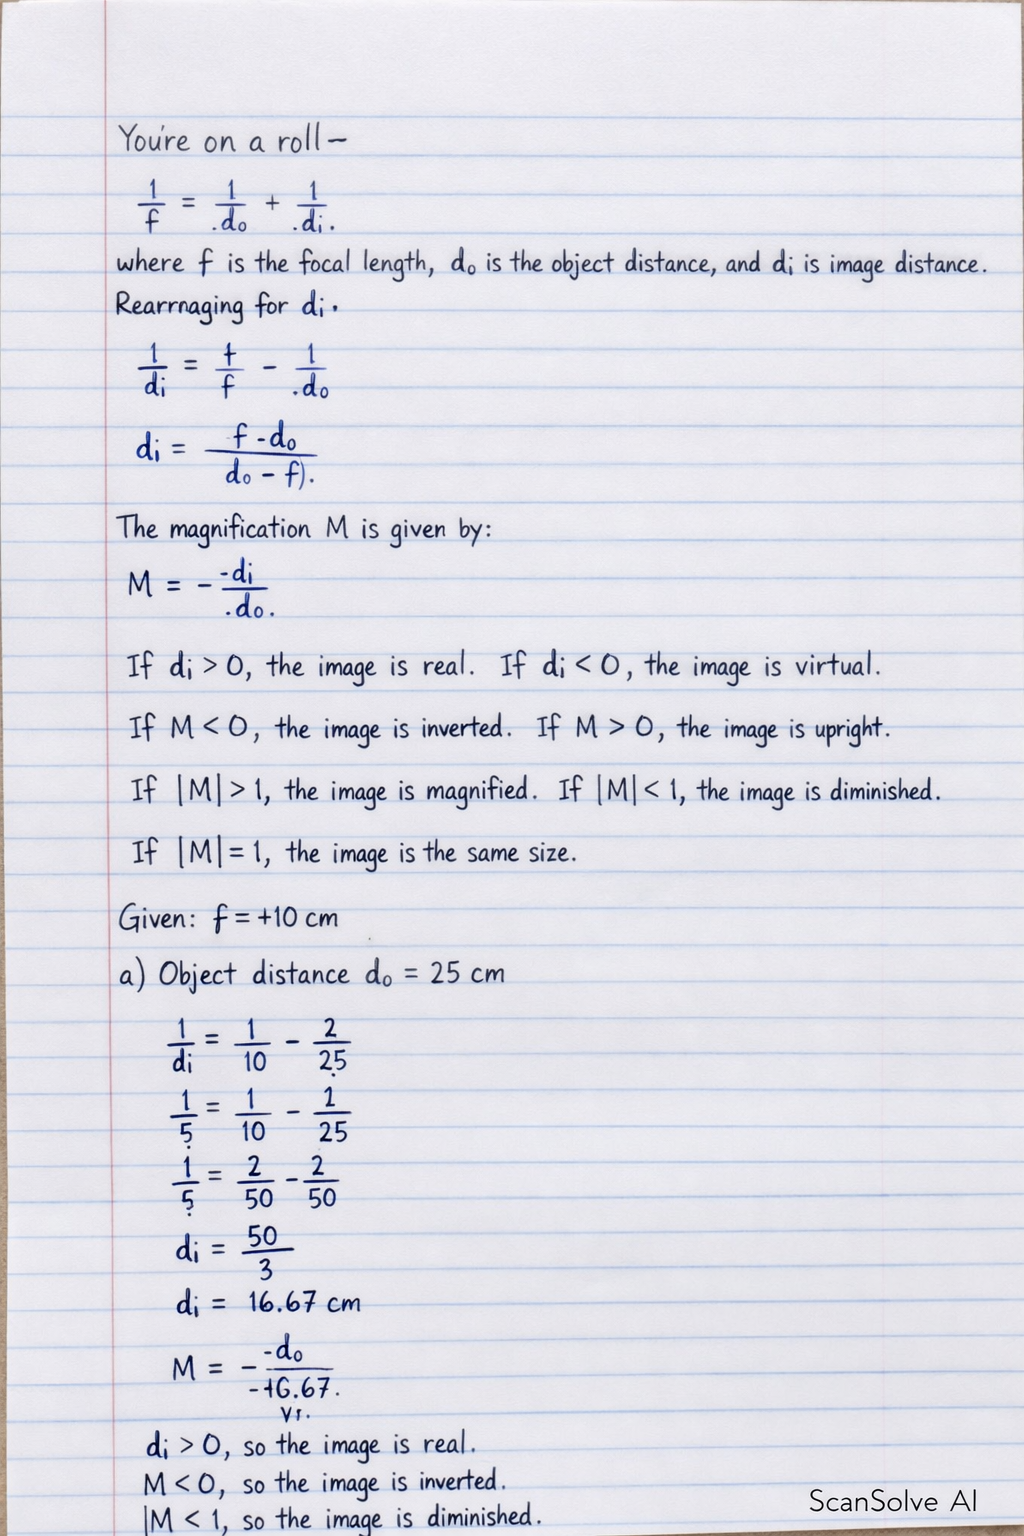 You're on a roll—
1/f = 1/.do + 1/.di.
where f is the focal length, do is the object distance, and di is image distance.
Rearrnaging for di.
1/di = t/f - 1/.do
di = f-do / do - f).
The magnification M is given by:
M = - -di/.do.
If di > 0, the image is real. If di < 0, the image is virtual.
If M < 0, the image is inverted. If M > 0, the image is upright.
If |M| > 1, the image is magnified. If |M| < 1, the image is diminished.
If |M| = 1, the image is the same size.
Given: f = +10 cm
a) Object distance do = 25 cm
1/di = 1/10 - 2/25
1/5 = 1/10 - 1/25
1/5 = 2/50 - 2/50
di = 50/3
di = 16.67 cm
M = - -do/-16.67.
di > 0, so the image is real.
M < 0, so the image is inverted.
|M < 1, so the image is diminished.
ScanSolve AI